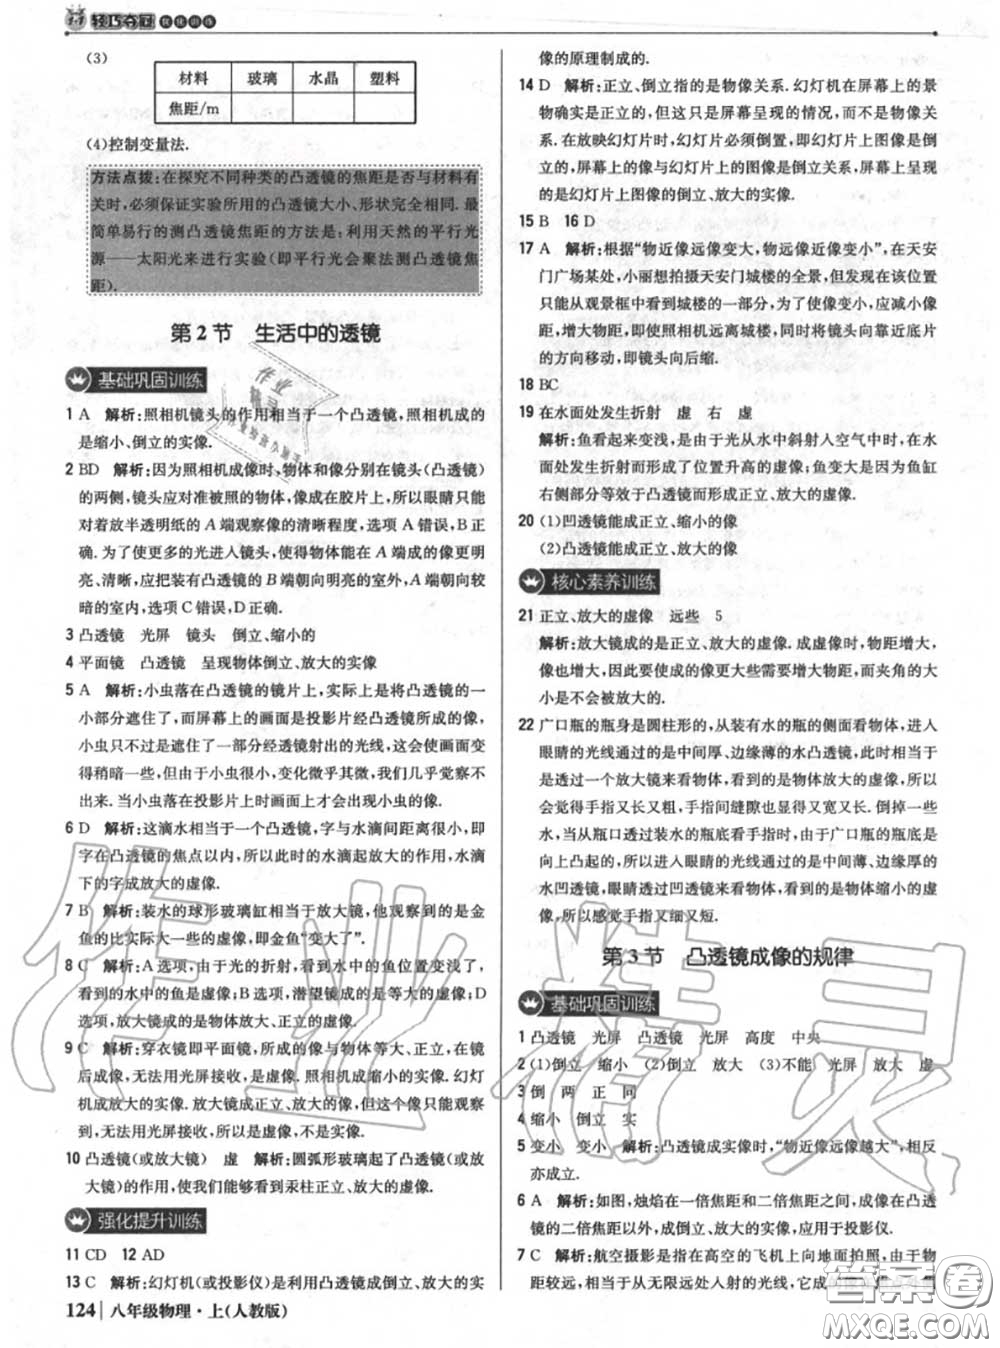 1+1 轻巧夺冠 优化训练
(3)
材料 玻璃 水晶 塑料
焦距/m
(4)控制变量法.
方法点拨:在探究不同种类的凸透镜的焦距是否与材料有
关时,必须保证实验所用的凸透镜大小、形状完全相同. 最
简单易行的测凸透镜焦距的方法是:利用天然的平行光
源——太阳光来进行实验(即平行光会聚法测凸透镜焦
距).
第2节 生活中的透镜
基础巩固训练
1 A 解析:照相机镜头的作用相当于一个凸透镜,照相机成的
是缩小、倒立的实像.
2 BD 解析:因为照相机成像时,物体和像分别在镜头(凸透镜)
的两侧,镜头应对准被照的物体,像成在胶片上,所以眼睛只能
对着放半透明纸的 A 端观察像的清晰程度,选项 A 错误,B 正
确. 为了使更多的光进入镜头,使得物体能在 A 端成的像更明
亮、清晰,应把装有凸透镜的 B 端朝向明亮的室外,A 端朝向较
暗的室内,选项 C 错误,D 正确.
3 凸透镜 光屏 镜头 倒立、缩小的
4 平面镜 凸透镜 呈现物体倒立、放大的实像
5 A 解析:小虫落在凸透镜的镜片上,实际上是将凸透镜的一
小部分遮住了,而屏幕上的画面是投影片经凸透镜所成的像,
小虫只不过是遮住了一部分经镜头射出的光线,这会使画面变
得稍暗一些,但由于小虫很小,变化微乎其微,我们几乎觉察不
出来. 当小虫落在投影片上时画面上才会出现小虫的像.
6 D 解析:这滴水相当于一个凸透镜,字与水滴间距离很小,即
字在凸透镜的焦点以内,所以此时水滴起放大的作用,水滴
下的字成放大的虚像.
7 B 解析:装水的球形玻璃缸相当于放大镜,他观察到的是金
鱼的比实际大一些的虚像,即金鱼“变大了”.
8 C 解析:A 选项,由于光的折射,看到水中的鱼比实际位置浅
一些,看到水中的鱼是虚像;B 选项,潜望镜成的是等大的虚像;D
选项,放大镜成的是物体放大、正立的虚像.
9 C 解析:穿衣镜即平面镜,所成的像与物体等大、正立,在镜
后成像,无法用光屏接收,是虚像. 照相机成缩小的实像. 幻灯
机成放大的实像. 放大镜成正立、放大的像,但像只能观察
到,无法用光屏接收,为虚像.
10 凸透镜(或放大镜) 虚 解析:圆弧形玻璃起了凸透镜(或放
大镜)的作用,使我们看到汞柱正立、放大的虚像.
强化提升训练
11 CD 12 AD
13 C 解析:幻灯机(或投影仪)是利用凸透镜成倒立、放大的实
124 八年级物理·上(人教版)
像的原理制成的.
14 D 解析:正立、倒立指的是物像关系. 幻灯机在屏幕上的景
物确实是正立的,但这只是屏幕上呈现的情况,而不是物像关
系. 在放映幻灯片时,幻灯片必须倒置,即幻灯片上的图像是倒
立的,屏幕上的像与幻灯片上的图像是倒立关系,屏幕上呈现
的是幻灯片上图像的倒立、放大的实像.
15 B 16 D
17 A 解析:根据“物近像远像变大,物远像近像变小”,在天安
门广场某处,小丽想拍摄天安门城楼的全景,但发现在该位置
只能从观景框中看到城楼的一部分,为了使像变小,应减小像
距,增大物距,即照相机远离城楼,同时将镜头向靠近底片
的方向移动,即镜头向后缩.
18 BC
19 在水面处发生折射 虚 右 虚
解析:鱼看起来变浅,是由于光从水中斜射入空气中时,在水
面处发生折射而形成了位置升高的虚像;而又因为鱼缸
右侧部分等效于凸透镜而形成正立、放大的虚像.
20 (1)凹透镜能成正立、缩小的像
(2)凸透镜能成正立、放大的像
核心素养训练
21 正立、放大的虚像 远些 5
解析:放大镜成的是正立、放大的虚像. 成虚像时,物距增大,
像也增大,因此要使成的像更大些需要增大物距,而夹角的大
小是不会被放大的.
22 广口瓶的瓶身是圆柱形的,从装有水的瓶的侧面看物体,进入
眼睛的光线通过的是中间厚、边缘薄的水凸透镜,此时相当于
是透过一个放大镜来看物体,看到的是物体放大的虚像,所以
会觉得手指又长又粗,手指间缝隙也显得又大又宽. 倒掉一些
水,当从瓶口透过装水的瓶底看手指时,由于广口瓶的瓶底是
向上凸起的,所以进入眼睛的光线通过的是中间薄、边缘厚的
水凹透镜,眼睛透过凹透镜看到的是物体正立、缩小的虚
像,所以感觉手指又细又短.
第3节 凸透镜成像的规律
基础巩固训练
1 凸透镜 光屏 凸透镜 光屏 高度 中央
2 (1)倒立 缩小 (2)倒立 放大 (3)不能 光屏 放大 虚
3 倒 两 正 同
4 缩小 倒立 实
5 变小 变小 解析:凸透镜成实像时,“物近像远像越大”,相反
亦成立.
6 A 解析:如图,烛焰在一倍焦距和二倍焦距之间,成像在凸透
镜的二倍焦距以外,成倒立、放大的实像,应用于投影仪.
7 C 解析:航空摄影是指在高空的飞机上向地面拍摄,由于物
距较远,相当于从无限远处入射的光线,它成
作业精灵
答案圈
MXQE.COM